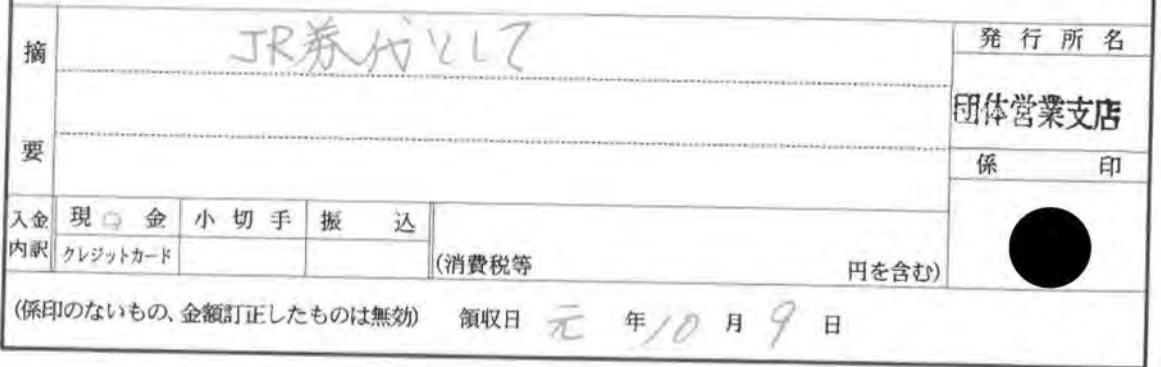 摘要
JR券代として
発行所名
団体営業支店
係印
入金内訳
現金 小切手 振込
クレジットカード
(消費税等 円を含む)
(係印のないもの、金額訂正したものは無効) 領収日 元年10月9日